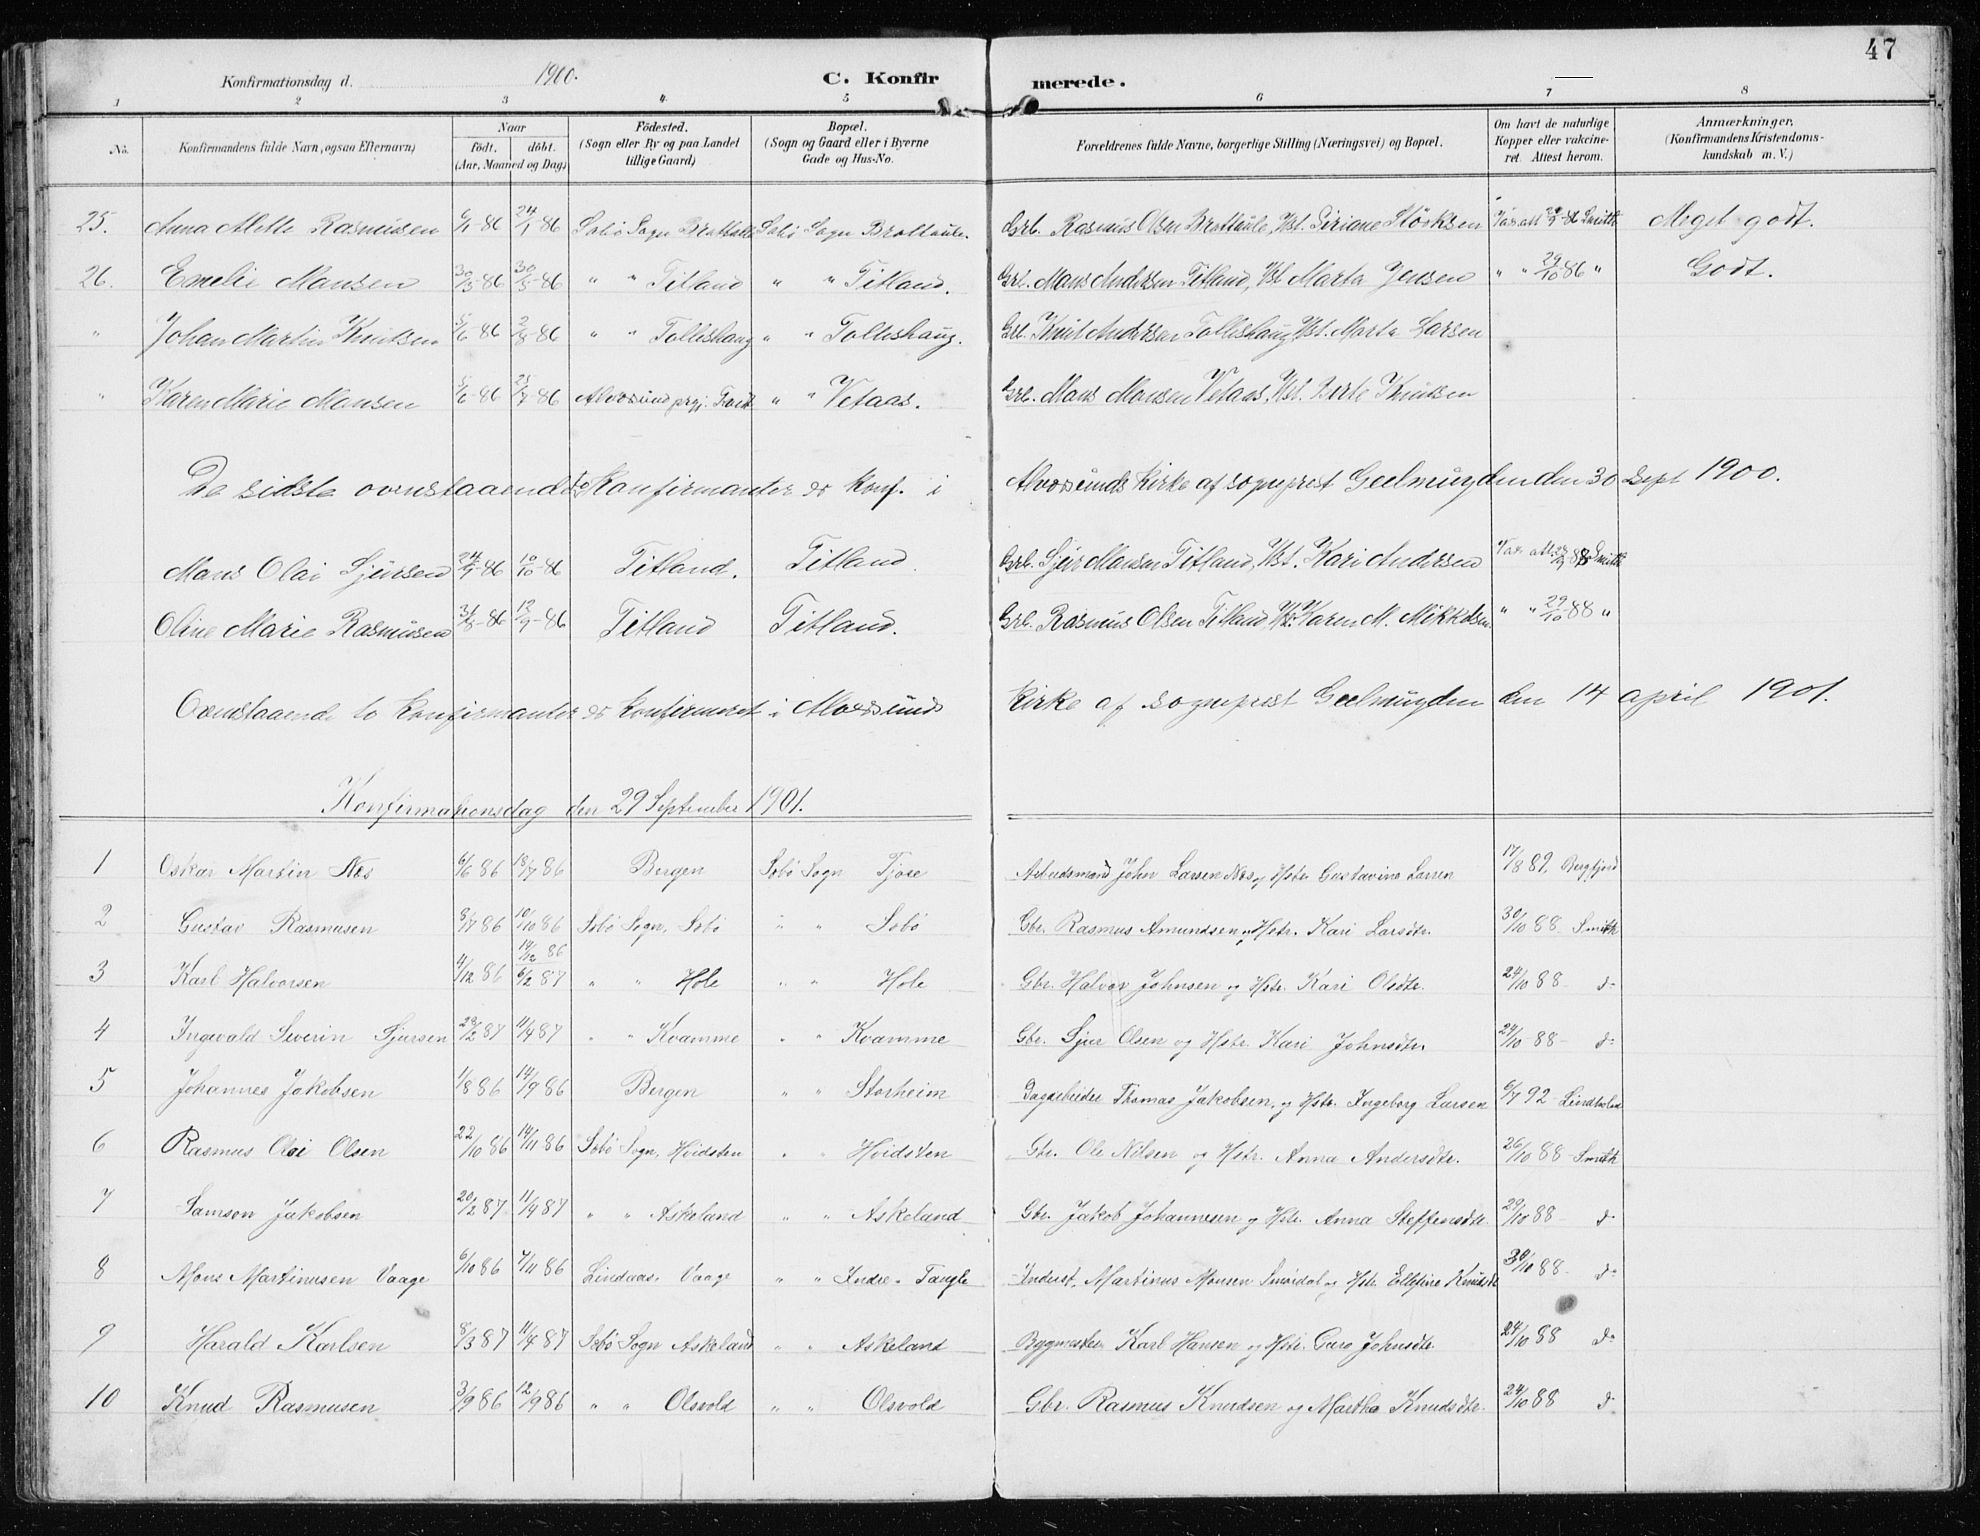 47
Konfirmationsdag d. 1900. C. Konfirmerede.
1 2 3 4. 5 6 7 8
No. Konfirmandens fulde Navn, ogsaa Efternavn) Naar født. døbt. (Aar, Maaned og Dag) Födested. (Sogn eller By og paa Landet tillige Gaard) Bopæl. (Sogn og Gaard eller i Byerne Gade og Hus-No. Forældrenes fulde Navne, borgerlige Stilling (Næringsvei) og Bopæl. Om havt de naturlige Kopper eller vakcineret. Attest herom. Anmærkninger. (Konfirmandens Kristendomskundskab m. V.)
25. Anna Mette Rasmusen 6/1-86 24/1-86 Sæbø Sogn Brattaule Sæbø Sogn Brattaule. Grb. Rasmus Olsen Brattaule, Hst. Siriane Smith Meget godt.
26. Emelie Mansen 30/3-86 30/5-86 " " Titland " " Titland. Grb. Mans Andersen Titland, Hst. Marta Jensen " " 29/10 86 " Godt.
" Johan Martin Knutsen 5/6-86 2/8-86 " " Tolleshaug " " Tolleshaug. Grb. Knut Andersen Tolleshaug Hst. Marta Larsen
" Karen Marie Mansen 5/6-86 25/7-86 Alversund prgj. " " Vetaas. Grb. Mans Mansen Vetaas, Hst. Berte Knutsen
De sidste ovenstaaende Konfirmanter er konf. i Alversunds kirke af sogneprest Geelmuyden den 30 Sept 1900.
Mans Olai Sjursen 24/9-86 10/10-86 Titland. Titland. Grb. Sjur Mansen Titland, Hst. Kari Andersen Smith
Oline Marie Rasmusen 31/8-86 12/9-86 Titland Titland. Grb. Rasmus Olsen Titland, Hst. Karen M. Mikkelsen. " " 29/10-88 "
Ovenstaaende to Konfirmanter er konfirmeret i Alversunds kirke af sogneprest Geelmuyden den 14 april 1901.
Konfirmationsdag den 29 September 1901.
1 Oskar Martin Næs 6/6 86 18/7 86 Bergen Sæbø Sogn Tjore Arbeidsmand John Larsen Næs og Hstr. Gustavine Larsen 17/8 89, Bergfjord
2 Gustav Rasmusen 8/8 86 10/10 86 Sæbø Sogn, Sæbø " " Sæbø Gbr. Rasmus Amundsen og Hstr. Kari Larsdtr. 30/10 88 - Smith
3 Karl Halvorsen 4/12 86 19/12 86 6/2 87 " " Hole " " Hole Gbr. Halvor Johnsen og Hstr. Kari Olsdtr. 24/10 88 - do
4 Ingevald Severin Sjursen 28/2 87 11/4 87 " " Kvamme " " Kvamme Gbr. Sjur Olsen og Hstr. Kari Johnsdtr. 24/10 - 88 - do
5 Johannes Jakobsen 1/8 86 14/9 86 Bergen " " Storheim Dagarbeider Thomas Jakobsen, og Hstr. Ingeborg Larsen 6/7 92 - Lindholm
6 Rasmus Olai Olsen 22/10 86 14/11 86 Sæbø Sogn, Høidsten " " Høidsten Gbr. Ole Nilsen og Hstr. Anna Andersdtr. 26/10 88 - Smith
7 Samson Jakobsen 20/2 87 11/4 87 " " Askeland " " Askeland Gbr. Jakob Johannesen og Hstr. Anna Steffensdtr. 29/10 88 - do
8 Mons Martinusen Vaage 6/10 86 7/11 86 Lindaas, Vaage " " Indre-Tangle Inderst, Martinus Monsen Smørdal og Hstr. Ellefine Knudsdtr 30/10 88 - do
9 Harald Karlsen 8/3 87 11/4 87 Sæbø Sogn Askeland " " Askeland Bygmester Karl Hansen og Hstr. Guro Johnsdtr. 24/10 88 do
10 Knud Rasmusen 3/9 86 12/9 86 " " Olsvold " " Olsvold Gbr. Rasmus Knudsen og Martha Knudsdtr. 24/10 88 do